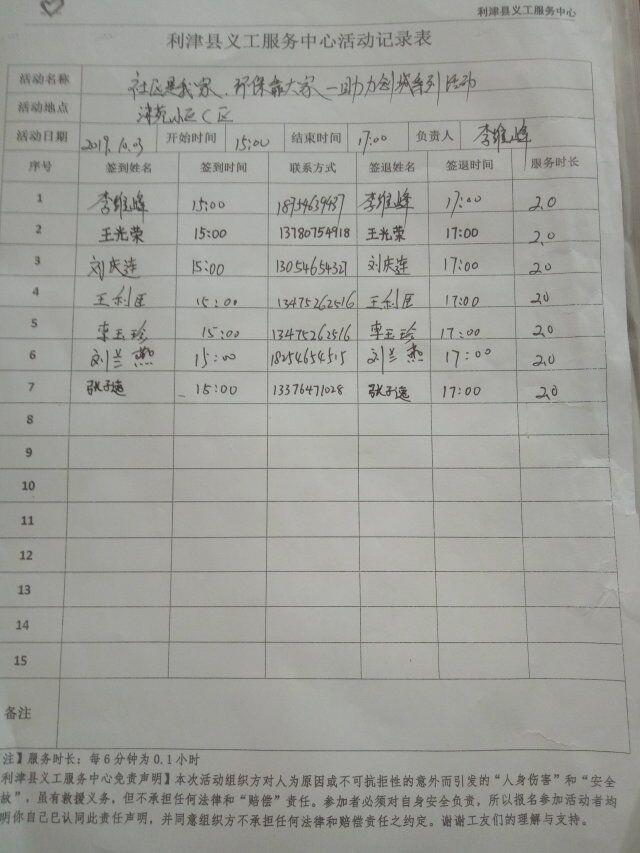 利津县义工服务中心
利津县义工服务中心活动记录表
活动名称 社区是我家、环保靠大家—助力创城系列活动
活动地点 津苑小区C区
活动日期 2019.10.03 开始时间 15:00 结束时间 17:00 负责人 李维峰
序号 签到姓名 签到时间 联系方式 签退姓名 签退时间 服务时长
1 李维峰 15:00 李维峰 17:00 2.0
2 王光荣 15:00 13780754918 王光荣 17:00 2.0
3 刘庆莲 15:00 13054654321 刘庆莲 17:00 2.0
4 王利匡 15:00 13475262516 王利匡 17:00 2.0
5 李玉珍 15:00 13475262516 李玉珍 17:00 2.0
6 刘兰燕 15:00 18254654515 刘兰燕 17:00 2.0
7 张子逸 15:00 13376471028 张子逸 17:00 2.0
8
9
10
11
12
13
14
15
备注
注】服务时长：每6分钟为0.1小时
利津县义工服务中心免责声明】本次活动组织方对人为原因或不可抗拒性的意外而引发的“人身伤害”和“安全
故”，虽有救援义务，但不承担任何法律和“赔偿”责任。参加者必须对自身安全负责，所以报名参加活动者均
明你自己已认同此责任声明，并同意组织方不承担任何法律和赔偿责任之约定。谢谢工友们的理解与支持。